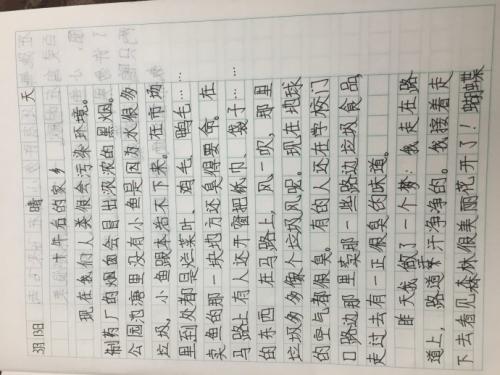 3月13日 晴 天
十年后的家乡
现在我们人类很会污染环境。
制药厂的烟囱会冒出浓浓的黑烟。
公园池塘里没有小鱼是因为水很多
垃圾,小鱼跟本治不下来。在市场
里到处都是烂菜叶、鸡毛、鸭毛……
卖鱼的那一块地方还臭得要命。在
马路上有人还开窗把纸巾、袋子……
的东西 在马路上,风一吹,那里
垃圾多多像个垃圾风呢。现在地球
的空气都很臭。有的人还在学校门
口路边那里卖那一些路边垃圾食品,
走过去有一正很臭的味道。
昨天我做了一个梦:我走在路
道上,路道干干净净的。我接着走
下去看见森林很美丽花开了!蝴蝶